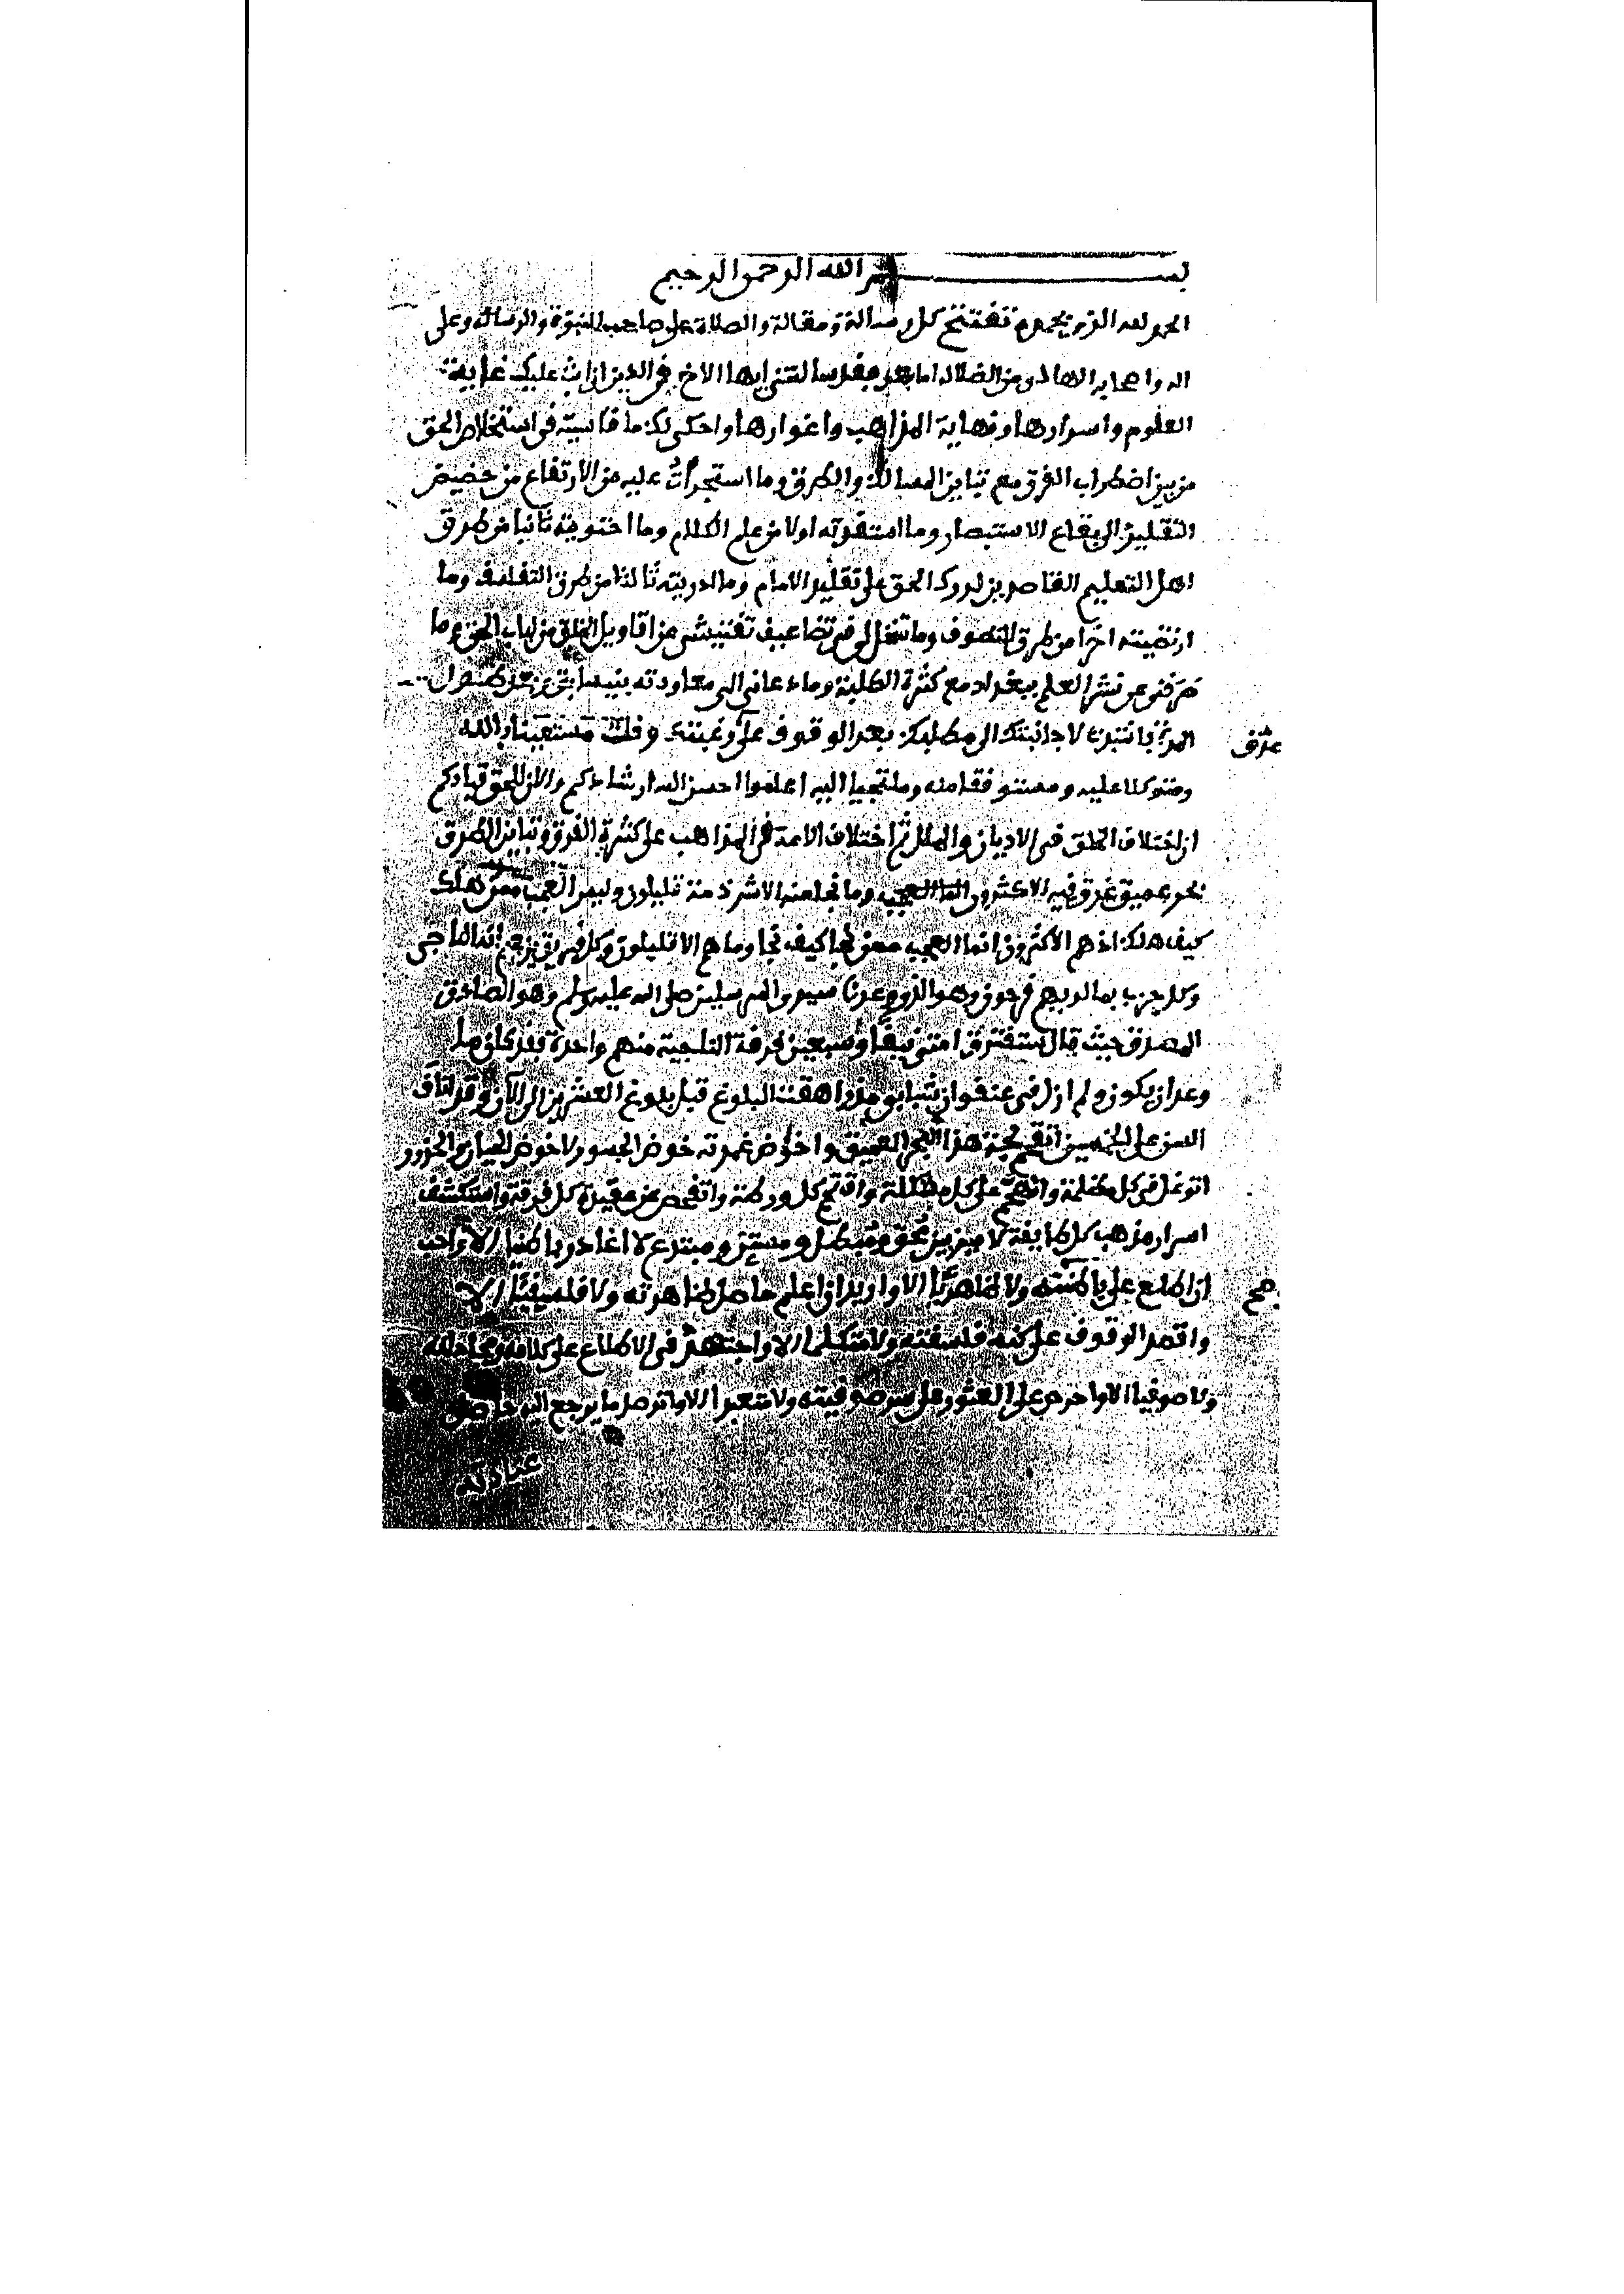 بسم الله الرحمن الرحيم
الحمد لله الذي بحمده تفتتح كل رسالة ومقالة والصلاة على صاحب النبوة والرسالة وعلى
اله واصحابه الهادين من الضلالة اما بعد فقد سالتني ايها الاخ في الدين ان ابث عليك غاية
العلوم واسرارها وغاية المذاهب واغوارها واحكي لك ما قاسيته في استخلاص الحق
من بين اضطراب الفرق مع تباين المسالك والطرق وما استجرأت عليه من الارتفاع من حضيض
التقليد الى يفاع الاستبصار وما استفدته اولا من علم الكلام وما احتويته ثانيا من طرق
اهل التعليم القاصرين لدرك الحق على تقليد الامام وما ازدريته ثالثا من طرق التفلسف وما
ارتضيته اخرا من طرق التصوف وما تنخل لي في تضاعيف تفتيشي عن اقاويل الخلق من لباب الحق وما
صرفني عن نشر العلم ببغداد مع كثرة الطلبة وما دعاني الى معاودته بنيسابور بعد طول
المدة فابتدرت لاجابتك الى مطلبك بعد الوقوف على رغبتك وقلت مستعينا بالله
ومتوكلا عليه ومستوفقا منه وملتجيا اليه اعلموا احسن الله ارشادكم والان للحق قيادكم
ان اختلاف الخلق في الاديان والملل ثم اختلاف الامة في المذاهب على كثرة الفرق وتباين الطرق
بحر عميق غرق فيه الاكثرون وما نجا منه الا شرذمة قليلون وليس العجب ممن هلك
كيف هلك اذ هم الاكثرون انما العجب ممن نجا كيف نجا وما هم الا قليلون وكل فريق يزعم انه الناجي
وكل حزب بما لديهم فرحون وهو الذي وعدنا سيد المرسلين صلى الله عليه وسلم وهو الصادق
المصدق حيث قال ستفترق امتي نيفا وسبعين فرقة الناجية منهم واحدة فقد كان ما
وعد ان يكون ولم ازل في عنفوان شبابي مذ راهقت البلوغ قبل بلوغ العشرين الى الآن وقد اناف
السن على الخمسين اقتحم لجة هذا البحر العميق واخوض غمرته خوض الجسور لا خوض الجبان الحذور
اتوغل في كل مظلمة واتهجم على كل مشكلة واقتحم كل ورطة واتفحص عن عقيدة كل فرقة واستكشف
اسرار مذهب كل طايفة لاميز بين محق ومبطل ومستن ومبتدع لا اغادر باطنيا الا واحب
ان اطلع على باطنيته ولا ظاهريا الا واريد ان اعلم حاصل ظاهرته ولا فلسفيا الا
واقصد الوقوف على كنه فلسفته ولا متكلما الا واجتهد في الاطلاع على كلامه ومجادلته
ولا صوفيا الا واحرص على العثور على سر صوفيته ولا متعبدا الا واترصد ما يرجع اليه حاصل
عبادته